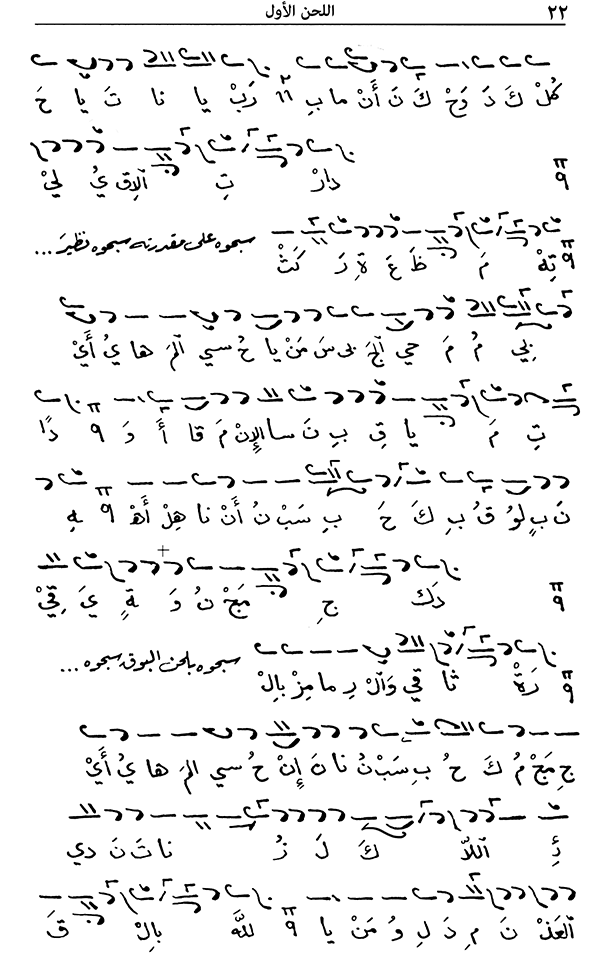 ٢٢ اللحن الأول
كُلْ كَ دَ وَحْ كَ نَ أَنْ ما بِ رَبْ يا نا تَ يا حَ
دارْ تِ آلاِق يُ لِيْ
تِهْ مَ ظَ عَ ةِ رَ كَثْ سبحوه على مقدرته سبحوه نظير...
بِي مُ مَ حي آلْ سَ مَنْ يا حُ سي آلمَ ها يُ أَيْ
تِ مَ يا قِ بِ نَ سا الإِنْ مَ قا أَ وَ دًا
نَ بٍ لو قُ بِ كَ حَ بِ سَبْ نُ أَنْ نا هِلْ أَهْ هِ
دَكَ جِ مَجْ نُ وَ ةٍ يَ قِيْ
رَةْ ثا قي وَآلْ رِ ما مِزْ بِالْ سبحوه بلحن البوق سبحوه ...
جِ مَجْ مُ كَ حُ بِ سَبْ نُ نا ةَ إِنْ حُ سي المَ ها يُ أَيْ
ئِ آللاَّ كَ لَ زُ نا تَ نَ دي
آلعَذْ نَ مِ دَ لِ وُ مَنْ يا للهَّ بِالْ قَ